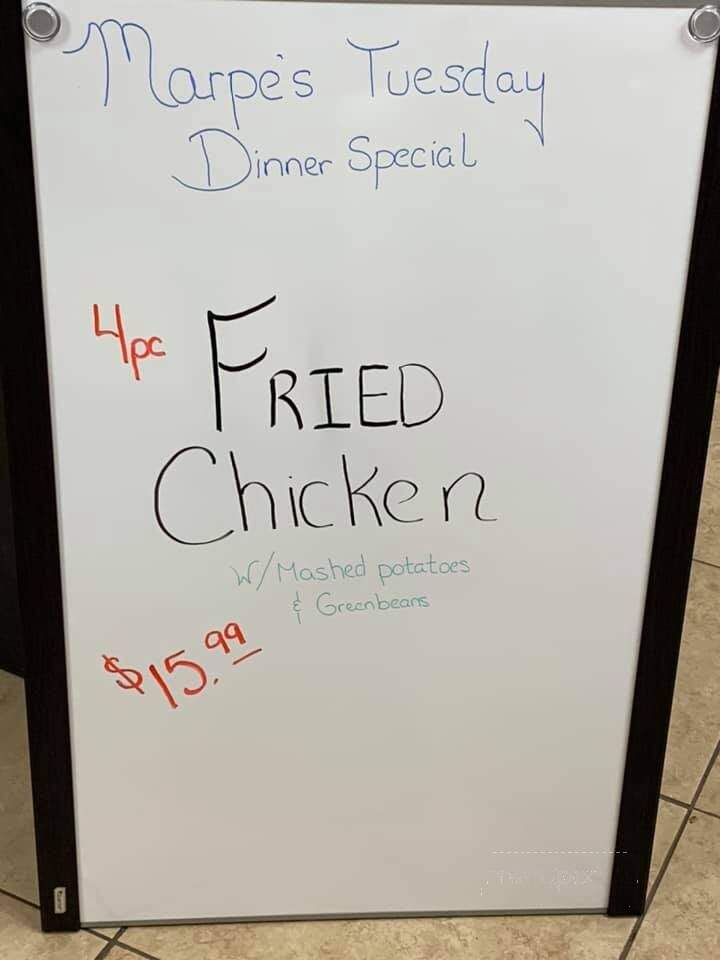 Marpe's Tuesday
Dinner Special
4pc FRIED
Chicken
W/Mashed potatoes
& Greenbeans
$15.99